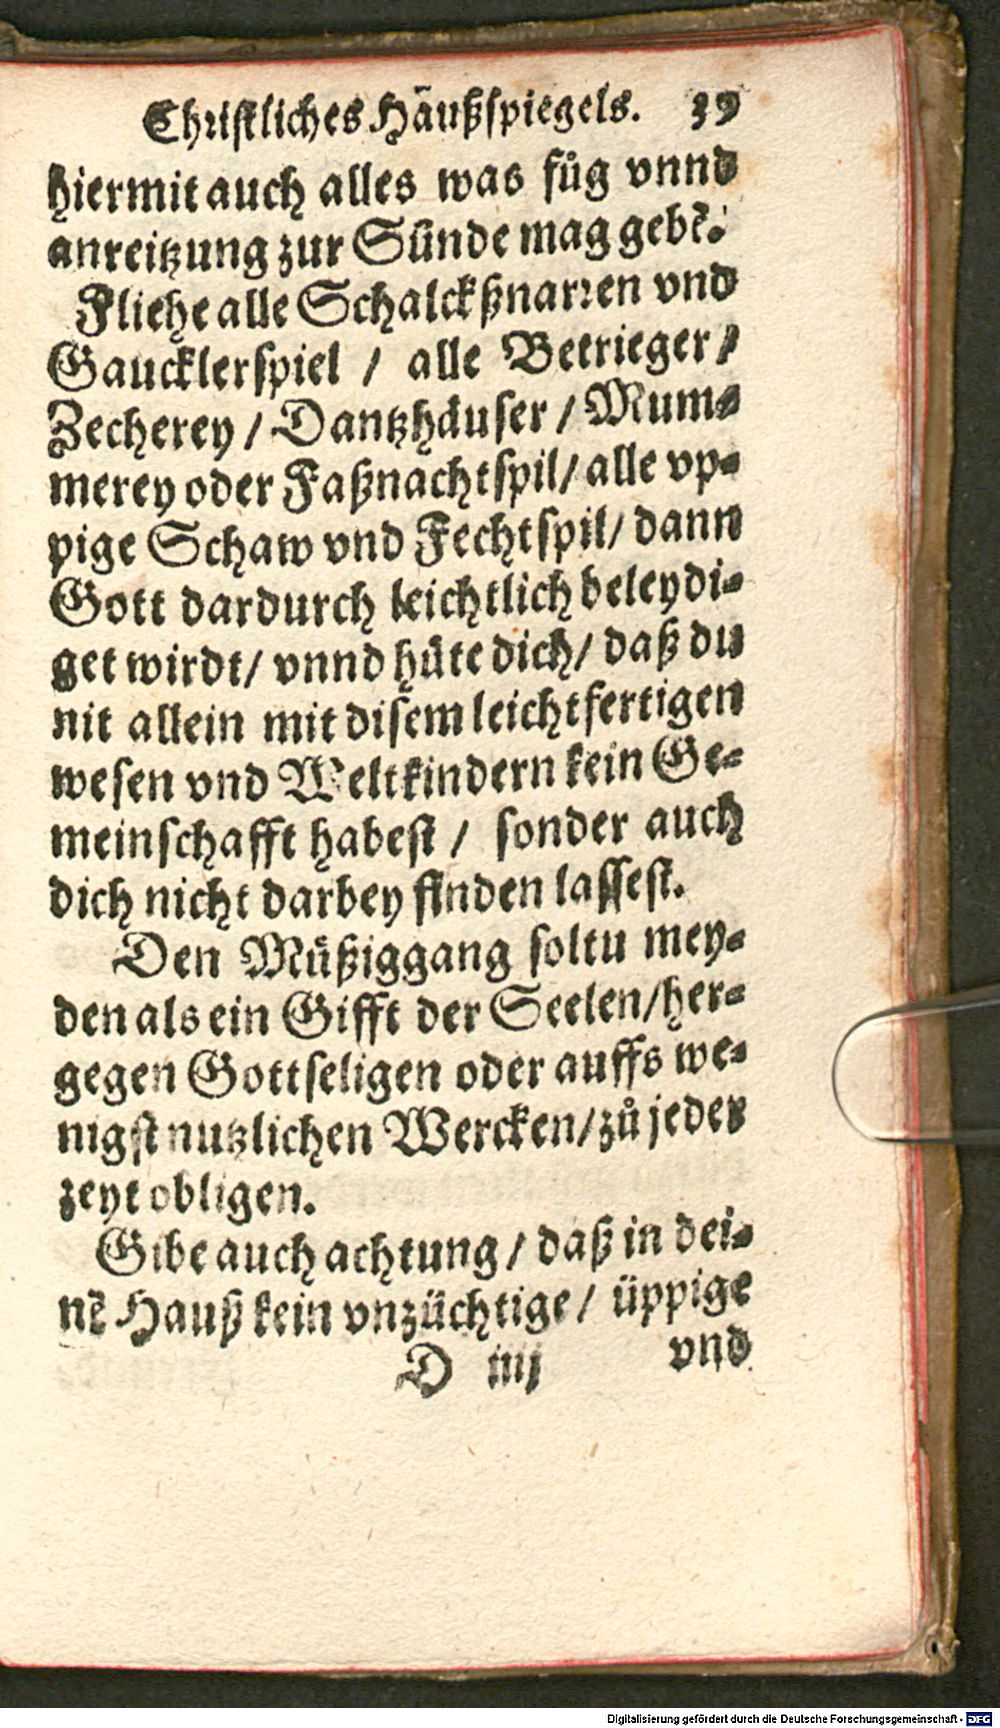 Christliches Häußspiegels. 39
hiermit auch alles was fůg vnnd
anreitzung zur Sünde mag gebẽ.
Fliehe alle Schalckßnarꝛen vnd
Gaucklerspiel / alle Betrieger /
Zecherey / Dantzhäuser / Mum⸗
merey oder Faßnachtspil / alle vp⸗
pige Schaw vnd Fechtspil / dann
Gott dardurch leichtlich beleydi⸗
get wirdt / vnnd hüte dich / daß du
nit allein mit disem leichtfertigen
wesen vnd Weltkindern kein Ge⸗
meinschafft habest / sonder auch
dich nicht darbey finden lassest.
Den Müßiggang soltu mey⸗
den als ein Gifft der Seelen / her⸗
gegen Gottseligen oder auffs we⸗
nigst nutzlichen Wercken / zů jeder
zeyt obligen.
Gibe auch achtung / daß in dei⸗
nẽ Hauß kein vnzüchtige / üppige
D iiij vnd
Digitalisierung gefördert durch die Deutsche Forschungsgemeinschaft - DFG